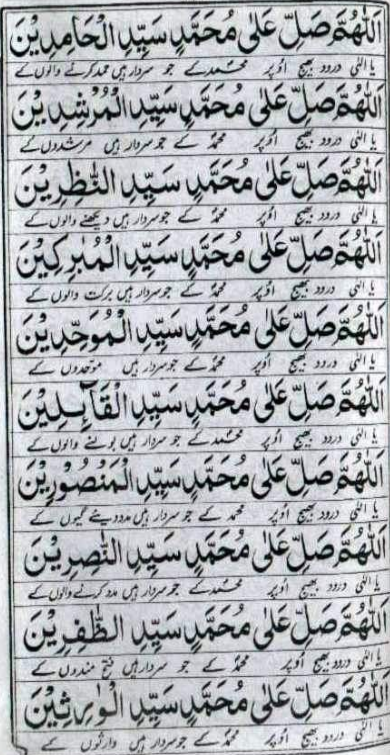 اَللّٰهُمَّ صَلِّ عَلٰى مُحَمَّدٍ سَيِّدِ الْحَامِدِيْنَ
یا الٰہی درود بھیج اوپر محمد کے جو سردار ہیں حمد کرنے والوں کے
اَللّٰهُمَّ صَلِّ عَلٰى مُحَمَّدٍ سَيِّدِ الْمُرْشِدِيْنَ
یا الٰہی درود بھیج اوپر محمد کے جو سردار ہیں مرشدوں کے
اَللّٰهُمَّ صَلِّ عَلٰى مُحَمَّدٍ سَيِّدِ النّٰظِرِيْنَ
یا الٰہی درود بھیج اوپر محمد کے جو سردار ہیں دیکھنے والوں کے
اَللّٰهُمَّ صَلِّ عَلٰى مُحَمَّدٍ سَيِّدِ الْمُبٰرِكِيْنَ
یا الٰہی درود بھیج اوپر محمد کے جو سردار ہیں برکت والوں کے
اَللّٰهُمَّ صَلِّ عَلٰى مُحَمَّدٍ سَيِّدِ الْمُوَحِّدِيْنَ
یا الٰہی درود بھیج اوپر محمد کے جو سردار ہیں موحدوں کے
اَللّٰهُمَّ صَلِّ عَلٰى مُحَمَّدٍ سَيِّدِ الْقَآئِلِيْنَ
یا الٰہی درود بھیج اوپر محمد کے جو سردار ہیں بولنے والوں کے
اَللّٰهُمَّ صَلِّ عَلٰى مُحَمَّدٍ سَيِّدِ الْمَنْصُوْرِيْنَ
یا الٰہی درود بھیج اوپر محمد کے جو سردار ہیں مدد دیئے گیوں کے
اَللّٰهُمَّ صَلِّ عَلٰى مُحَمَّدٍ سَيِّدِ النّٰصِرِيْنَ
یا الٰہی درود بھیج اوپر محمد کے جو سردار ہیں مدد کرنے والوں کے
اَللّٰهُمَّ صَلِّ عَلٰى مُحَمَّدٍ سَيِّدِ الظّٰفِرِيْنَ
یا الٰہی درود بھیج اوپر محمد کے جو سردار ہیں فتح مندوں کے
اَللّٰهُمَّ صَلِّ عَلٰى مُحَمَّدٍ سَيِّدِ الْوٰرِثِيْنَ
یا الٰہی درود بھیج اوپر محمد کے جو سردار ہیں وارثوں کے